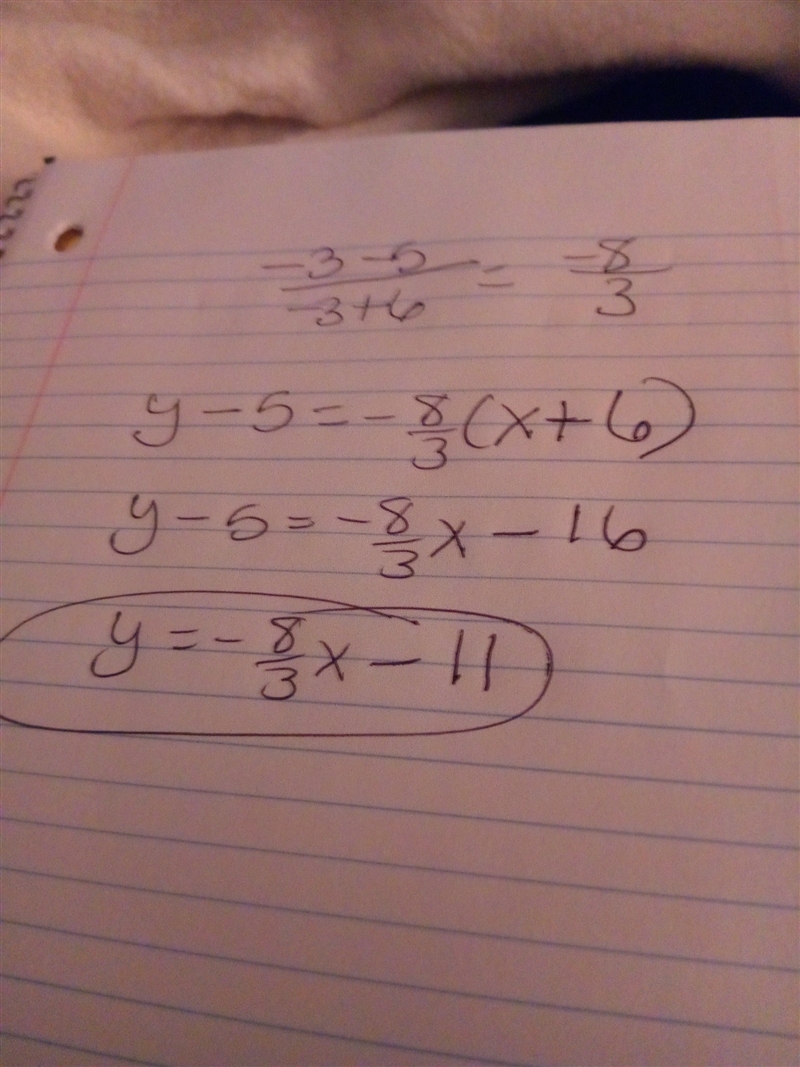 -3-5/-3+6 = -8/3
y-5=-8/3(x+6)
y-5=-8/3x-16
y=-8/3x-11